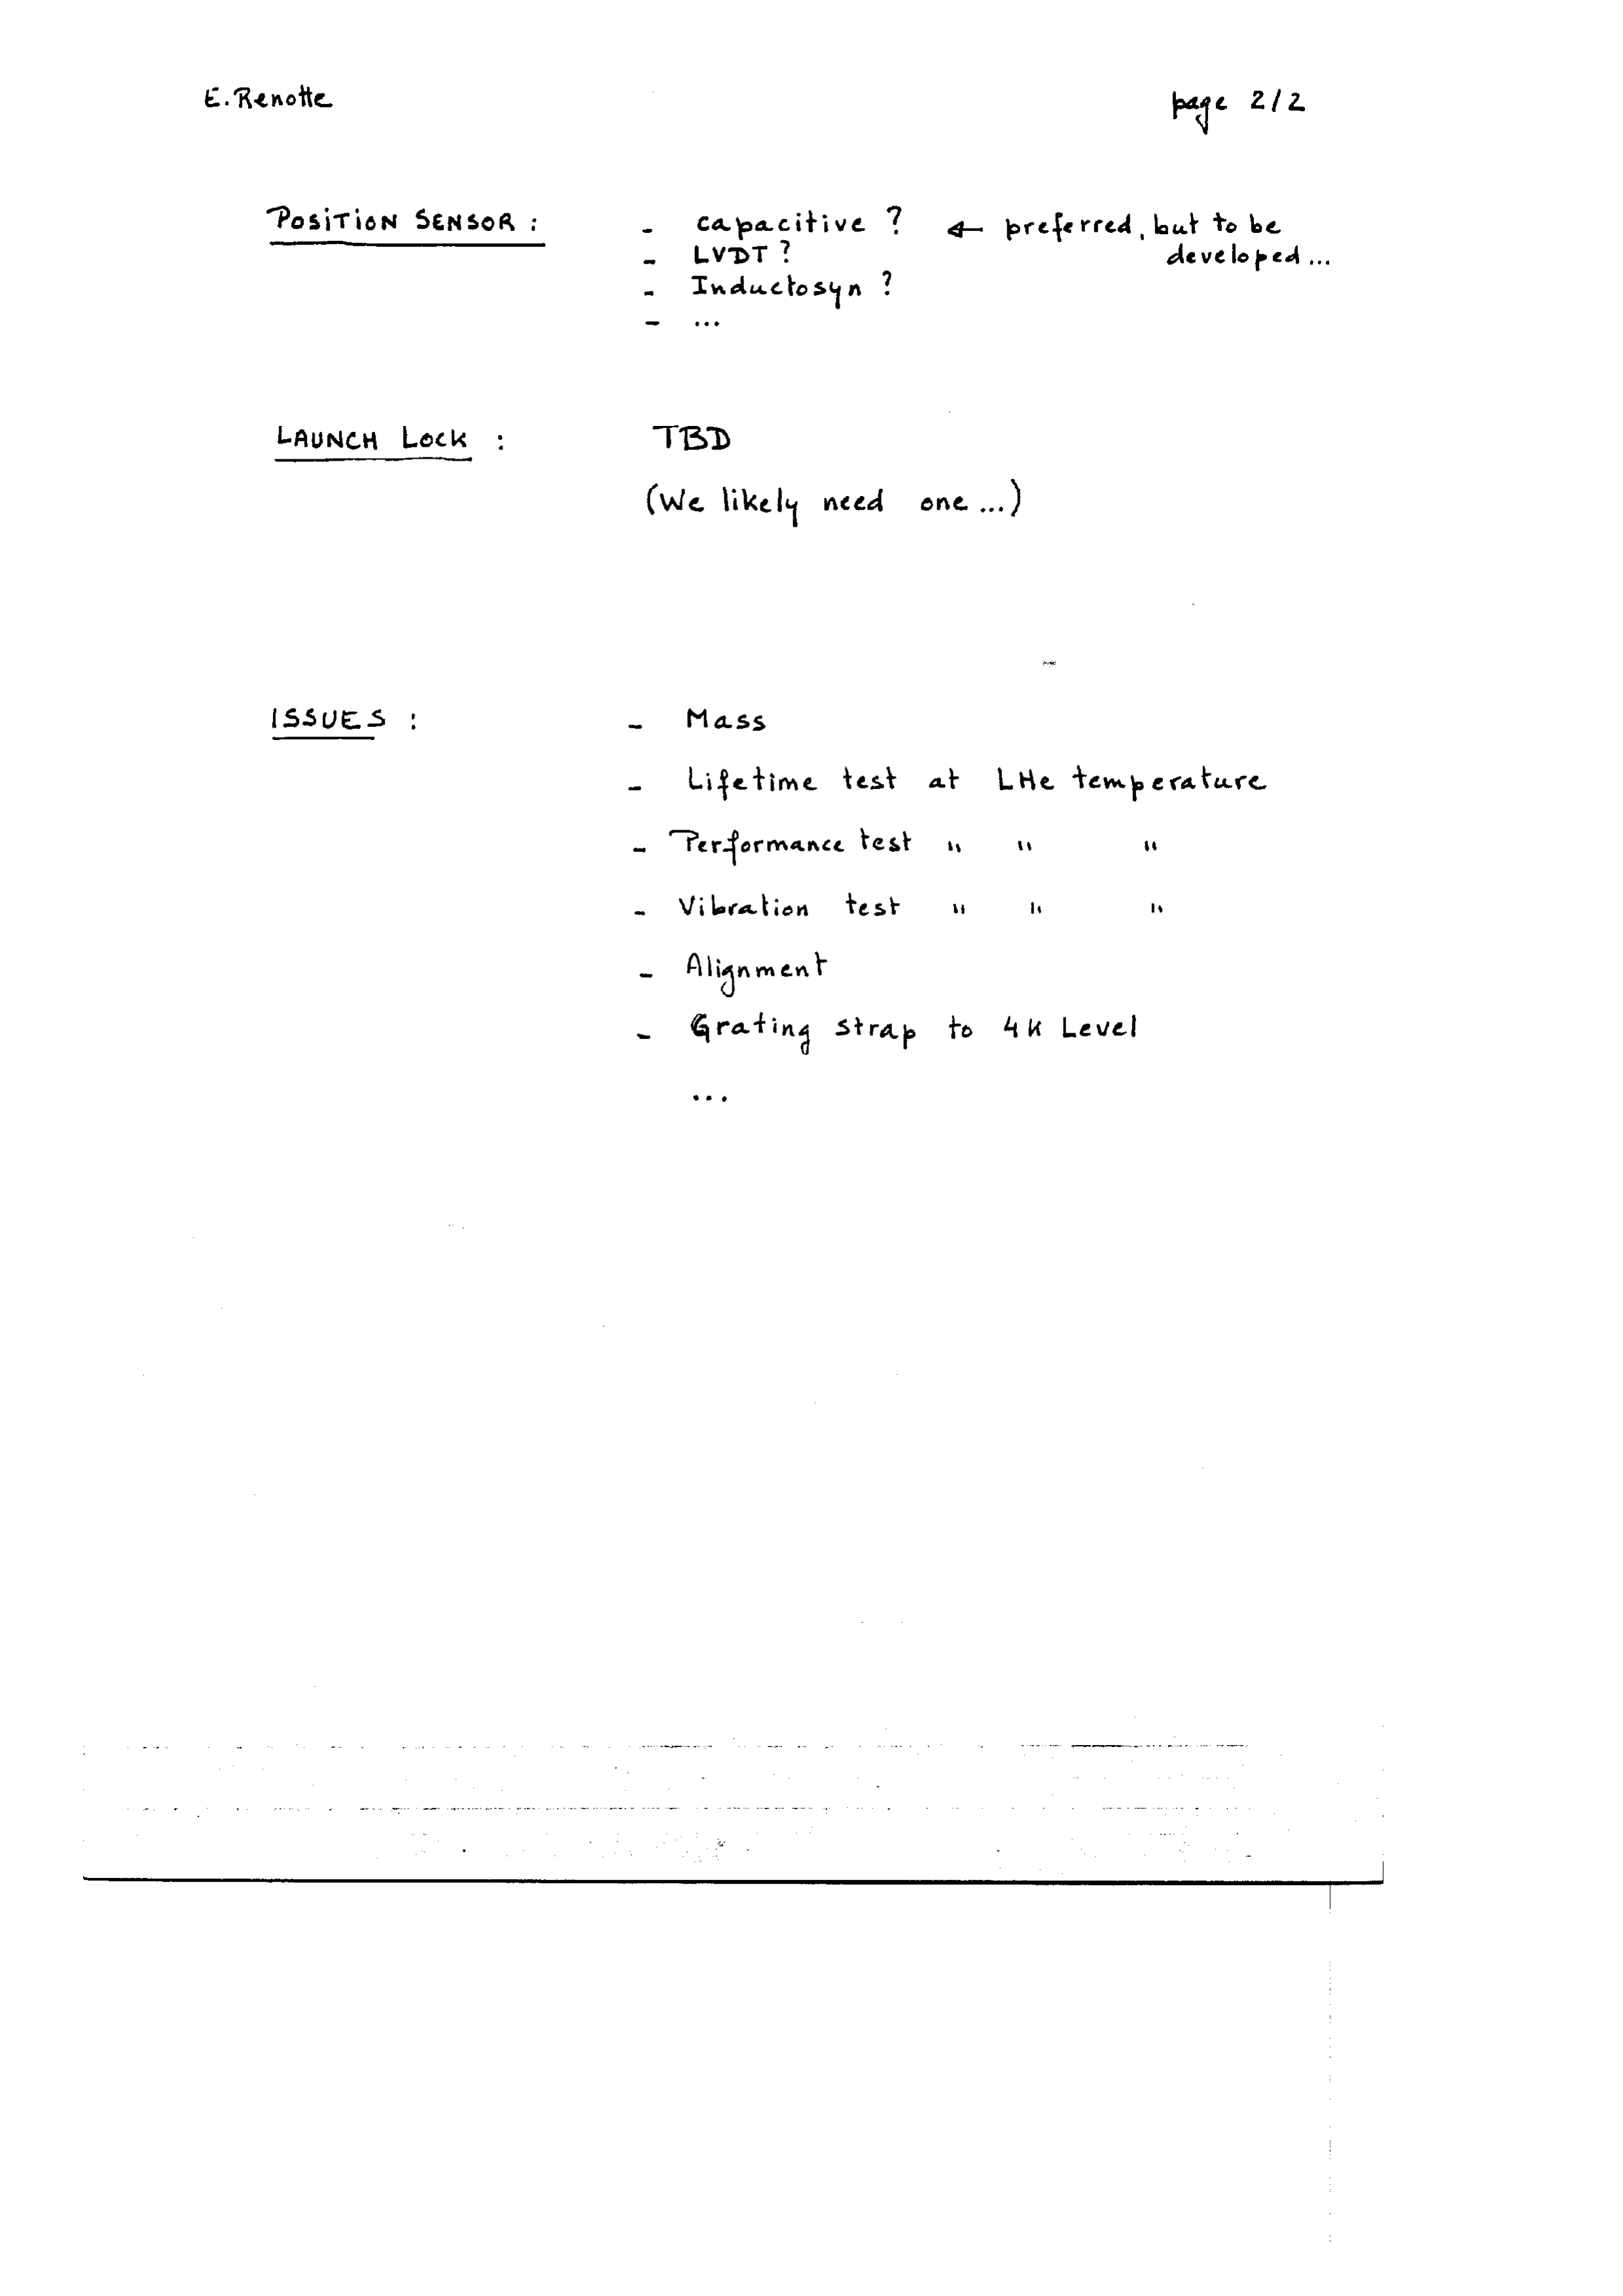 E. Renotte page 2/2
POSITION SENSOR : - capacitive ? ← preferred, but to be
- LVDT ? developed ...
- Inductosyn ?
- ...
LAUNCH LOCK : TBD
(We likely need one ...)
ISSUES : - Mass
- Lifetime test at LHe temperature
- Performance test " " "
- Vibration test " " "
- Alignment
- Grating strap to 4K Level
...